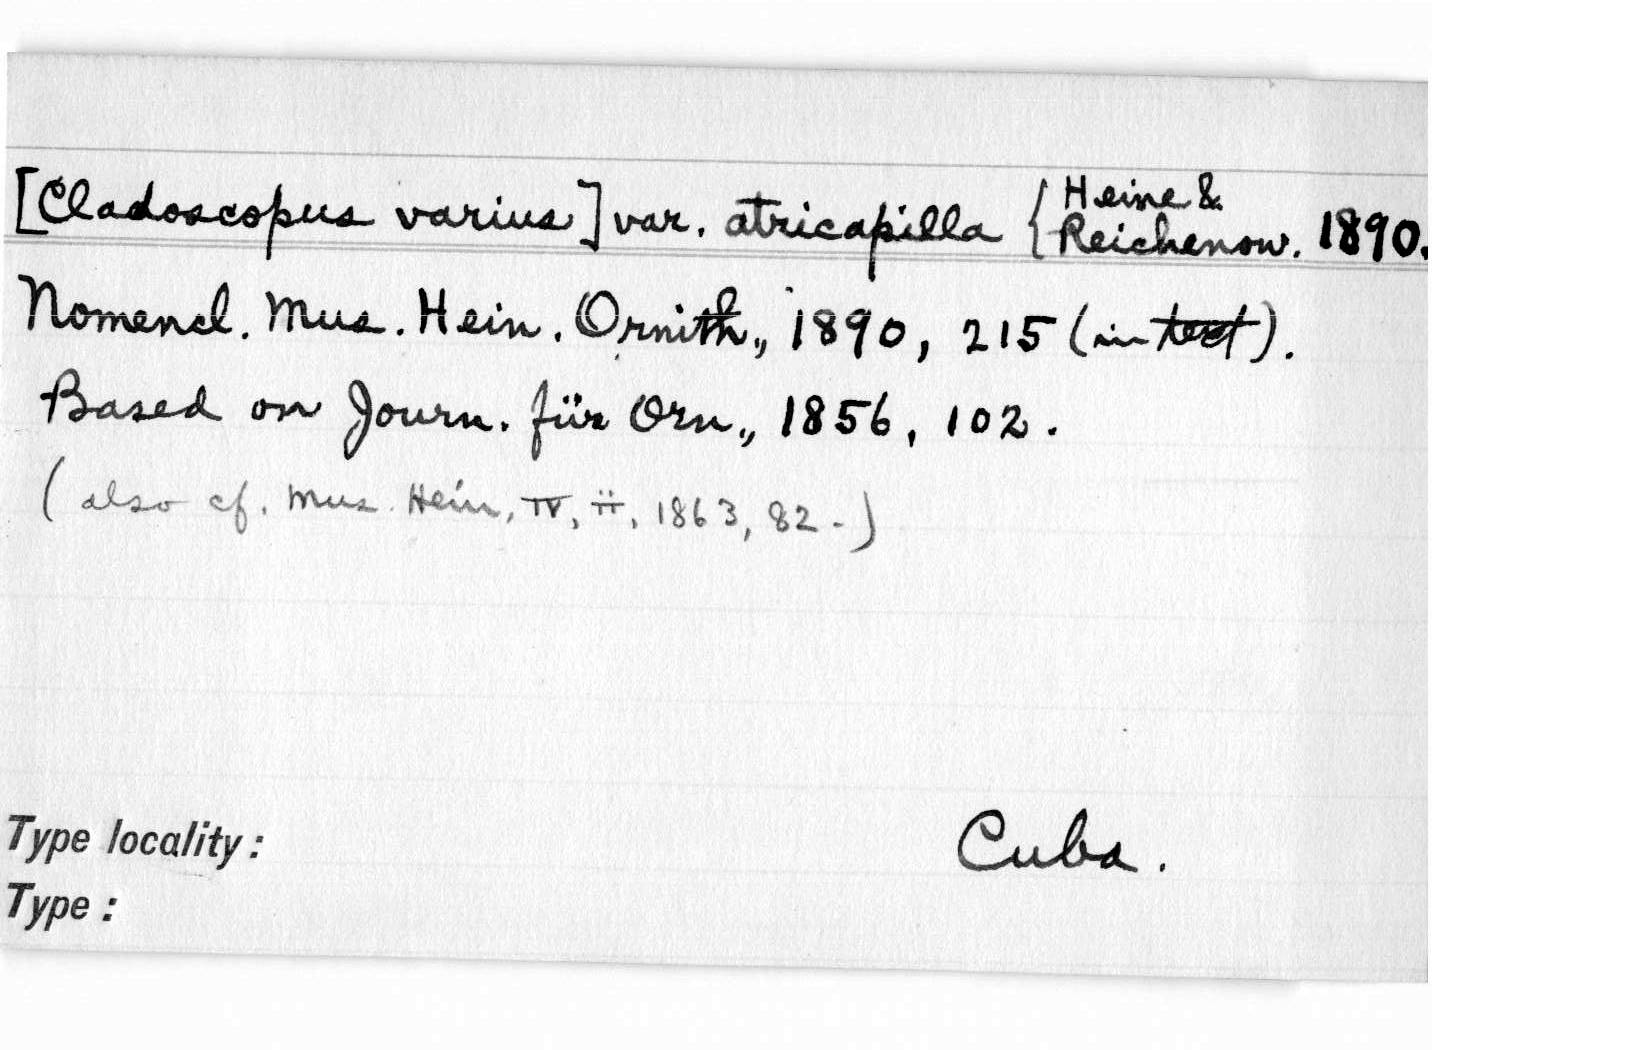 [Cladoscopus varius] var. atricapilla { Heine & Reichenow. 1890.
Nomencl. Mus. Hein. Ornith., 1890, 215 (in text).
Based on Journ. für Orn., 1856, 102.
(also cf. Mus. Hein, IV, ii, 1863, 82.)
Type locality: Cuba.
Type: